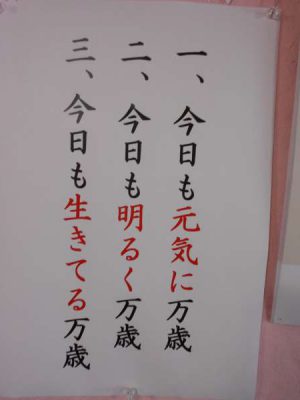 一、今日も元気に万歳
二、今日も明るく万歳
三、今日も生きてる万歳